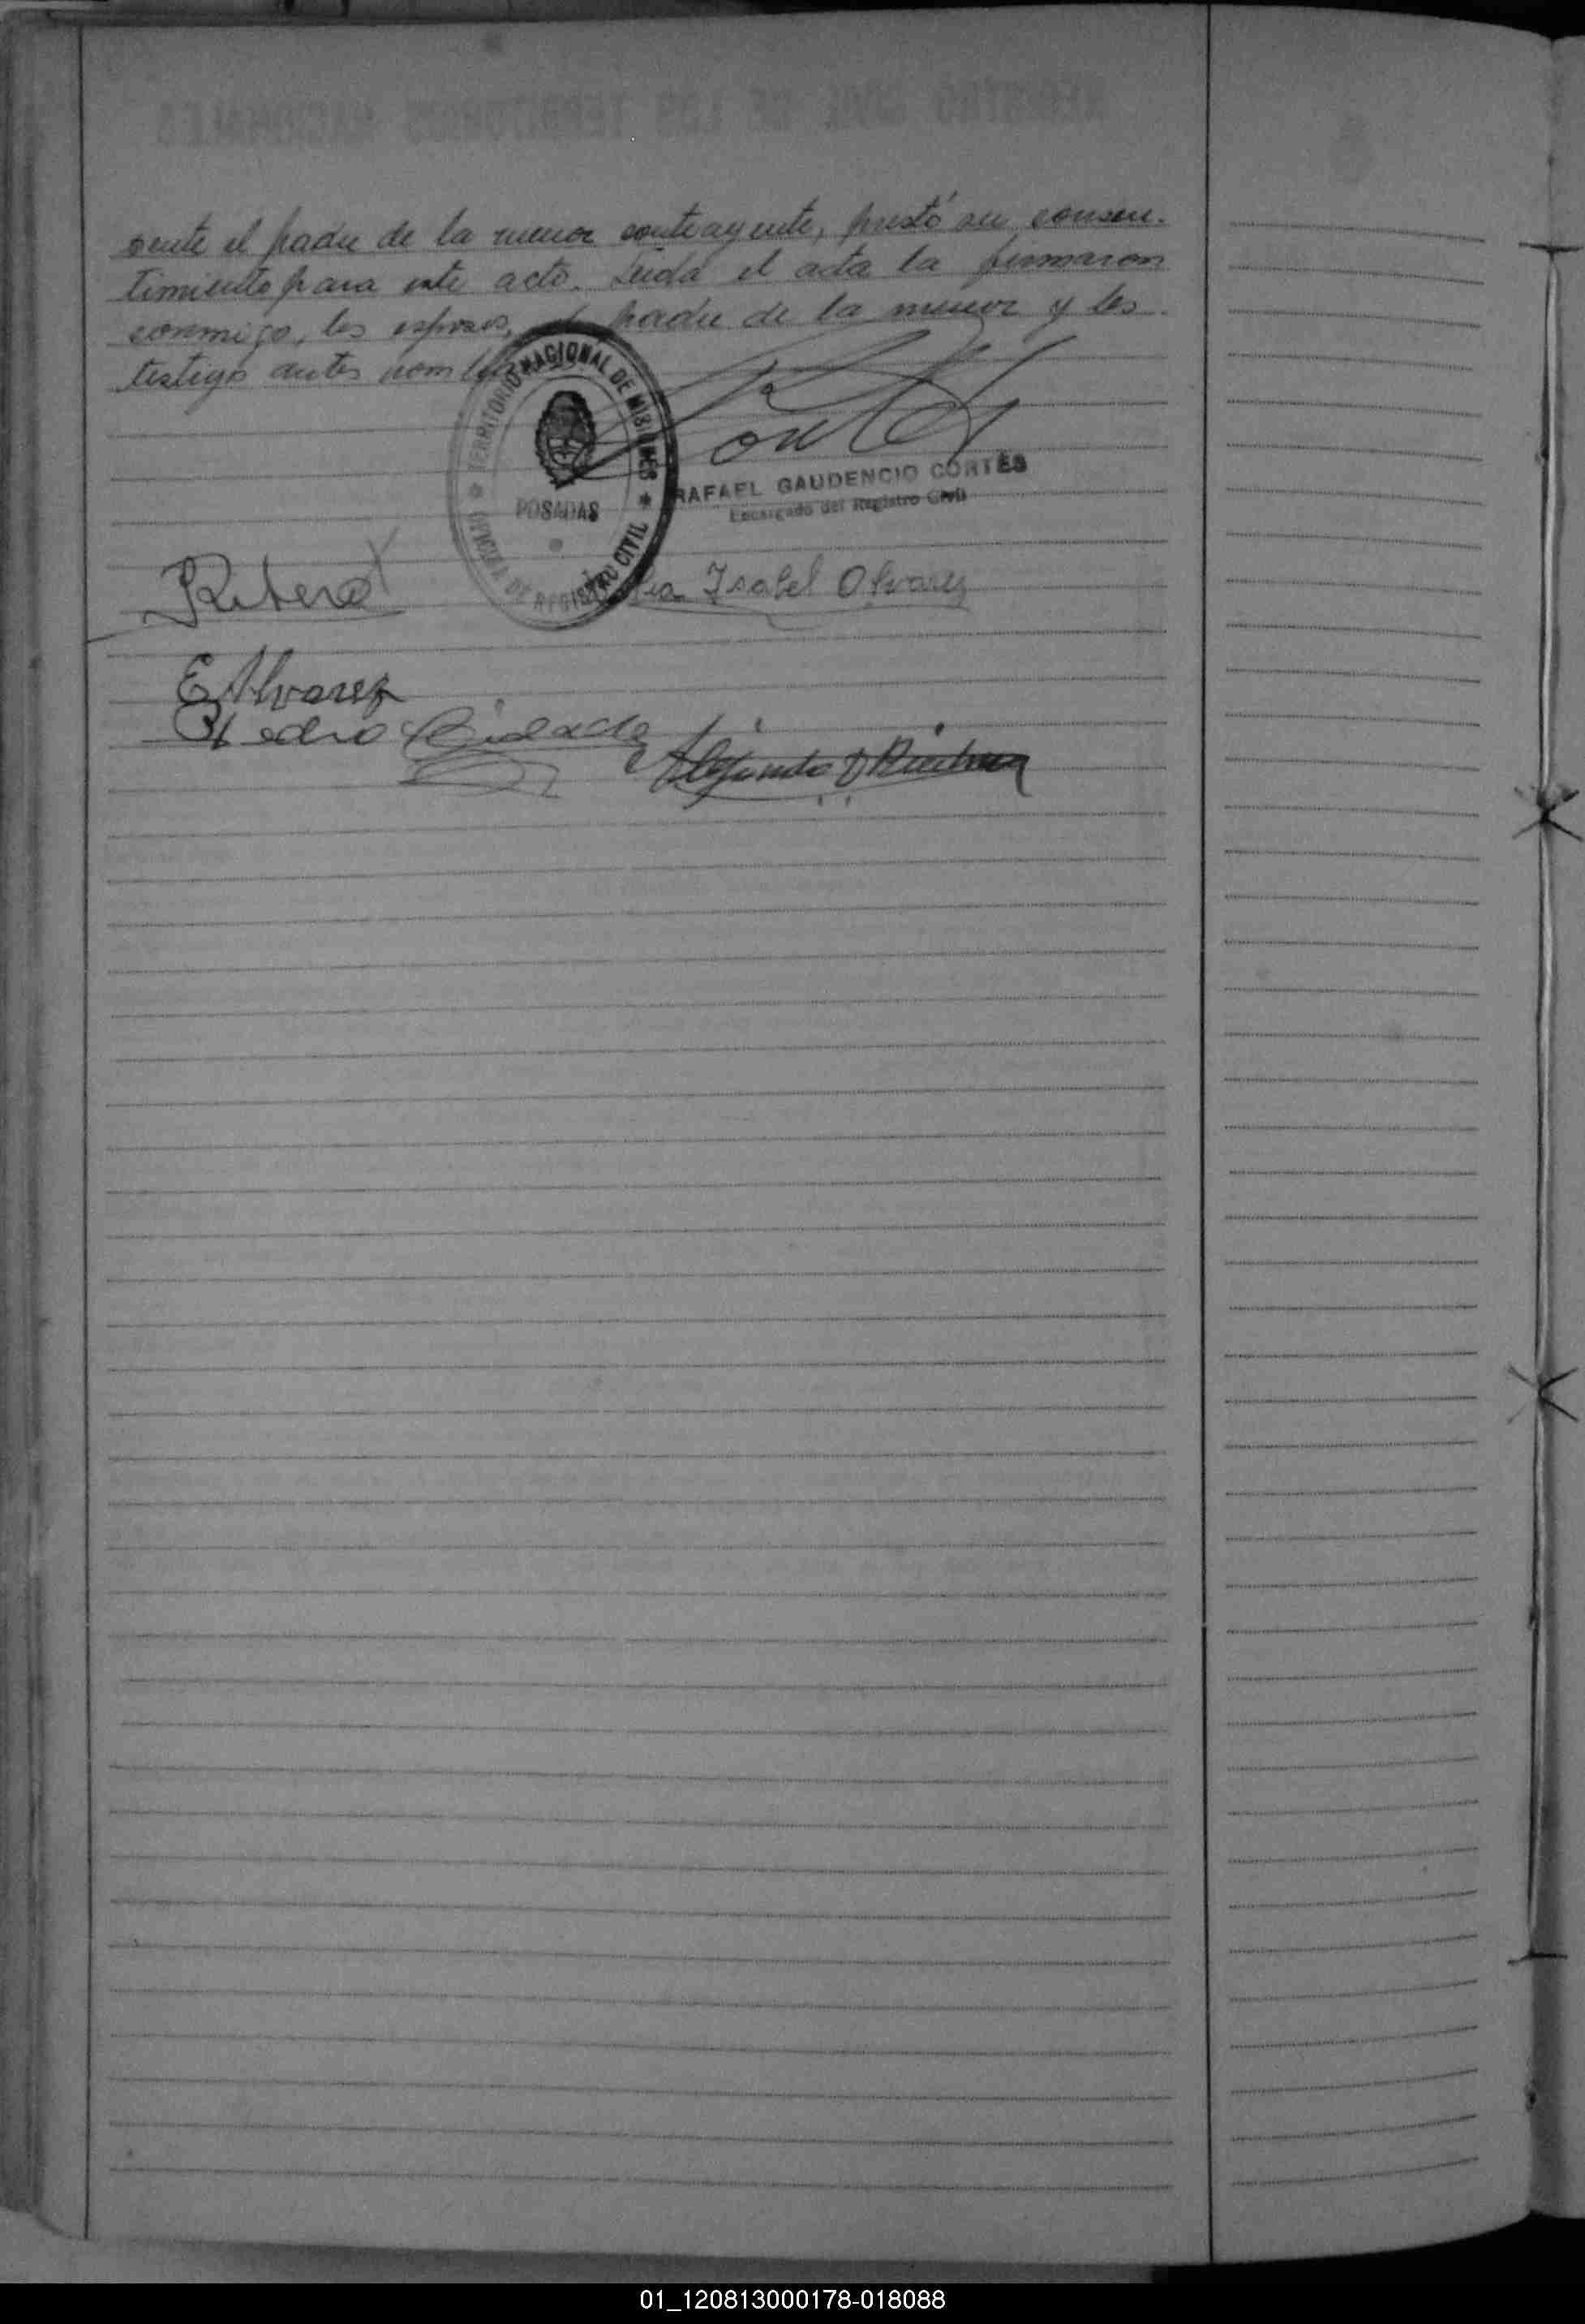 sente el padre de la menor contrayente, prestó su consen-
timiento para este acto. Leida el acta la firmaron
conmigo, los esposos, el padre de la menor y los
testigos antes nom
TERRITORIO NACIONAL DE MISIONES
POSADAS
OFICINA DE REGISTRO CIVIL
RAFAEL GAUDENCIO CORTÉS
Encargado del Registro Civil
Ribero
Isabel Alvarez
E Alvarez
Pedro
Alejandro
01_120813000178-018088